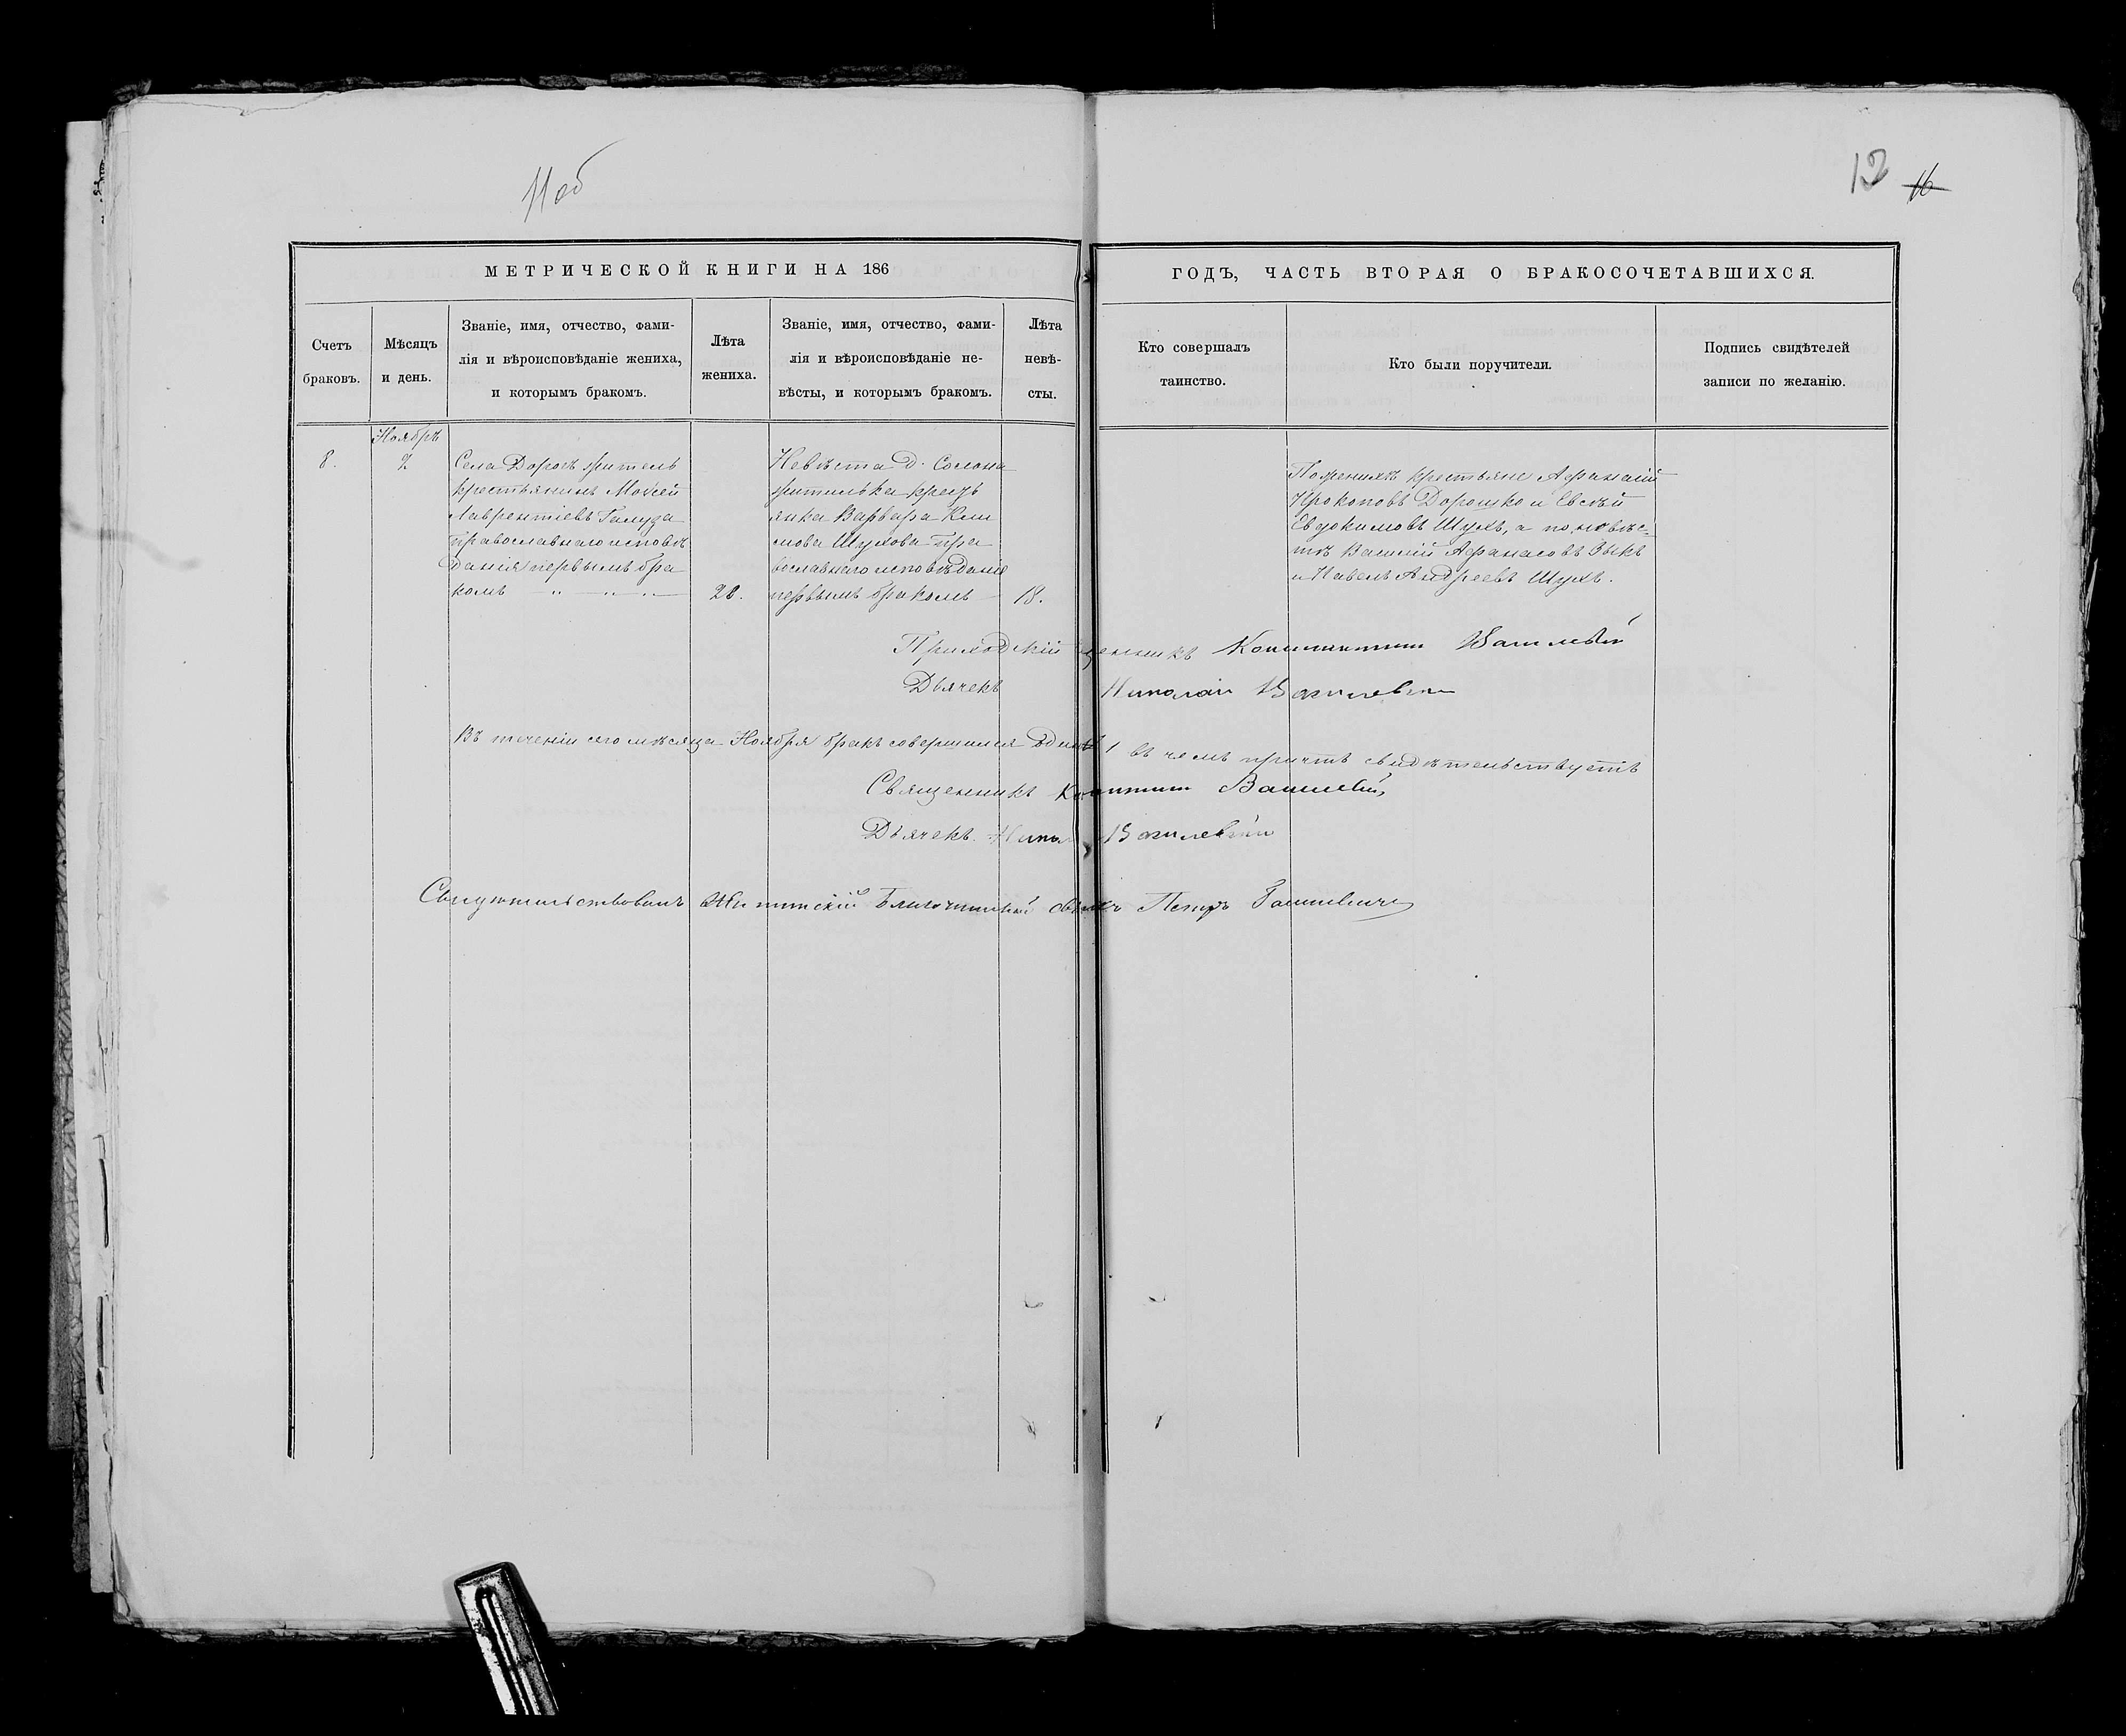 11 об
12 16
МЕТРИЧЕСКОЙ КНИГИ НА 186
ГОДЪ, ЧАСТЬ ВТОРАЯ О БРАКОСОЧЕТАВШИХСЯ.
Счетъ
браковъ.
Мѣсяцъ
и день.
Званіе, имя, отчество, фами-
лія и вѣроисповѣданіе жениха,
и которымъ бракомъ.
Лѣта
жениха.
Званіе, имя, отчество, фами-
лія и вѣроисповѣданіе не-
вѣсты, и которымъ бракомъ.
Лѣта
невѣ-
сты.
Кто совершалъ
таинство.
Кто были поручители.
Подпись свидѣтелей
записи по желанію.
Ноябрь
8.
Села Дорогъ житель
крестьянинъ Моисей
Лаврентіевъ Галуза
Православнаго исповѣ
данія первымъ бра
комъ
28.
Невѣста д. Солона
жителька крестъ
янка Варвара Кли
мова Шухова пра
вославнаго исповѣданія
первымъ бракомъ
18.
По женихѣ крестьяне Афанасій
Прокоповъ Дорошко и Евсѣй
Евдокимовъ Шухъ, а по невѣс-
тѣ Василій Афанасовъ Зыкъ
и Павелъ Андреевъ Шухъ.
Приходскій Константинъ
Дьячекъ Николай Василевскій
Въ теченіи сего мѣсяца Ноября бракъ совершился одинъ 1 въ чемъ причтъ свидѣтельствуетъ
Священникъ
Дьячекъ Василевскій
Свидѣтельствовалъ Благочинный Петръ